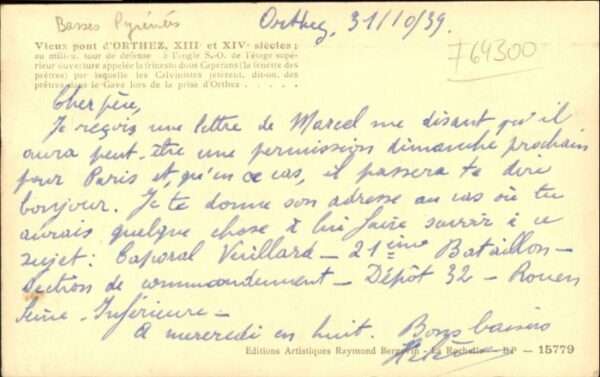 Basses Pyrénées
Orthez, 31/10/39.
F64300
Vieux pont d'ORTHEZ, XIII et XIVe siècles;
au milieu, tour de défense à l'angle S.-O. de l'étage supé-
rieur ouverture appelée la frinesto dous Caperans (la fenêtre des
prêtres) par laquelle les Calvinistes jetèrent, dit-on, des
prêtres dans le Gave lors de la prise d'Orthez . . . . .
Cher père,
Je reçois une lettre de Marcel me disant qu'il
aura peut-être une permission dimanche prochain
pour Paris et, qu'en ce cas, il passera te dire
bonjour. Je te donne son adresse au cas où tu
aurais quelque chose à lui faire savoir à ce
sujet : Caporal Vuillard - 21ème Bataillon -
Section de commandement - Dépôt 32 - Rouen
Seine-Inférieure -
A mercredi en huit. Bons baisers
Editions Artistiques Raymond Bergevin - La Rochelle - BP - 15779